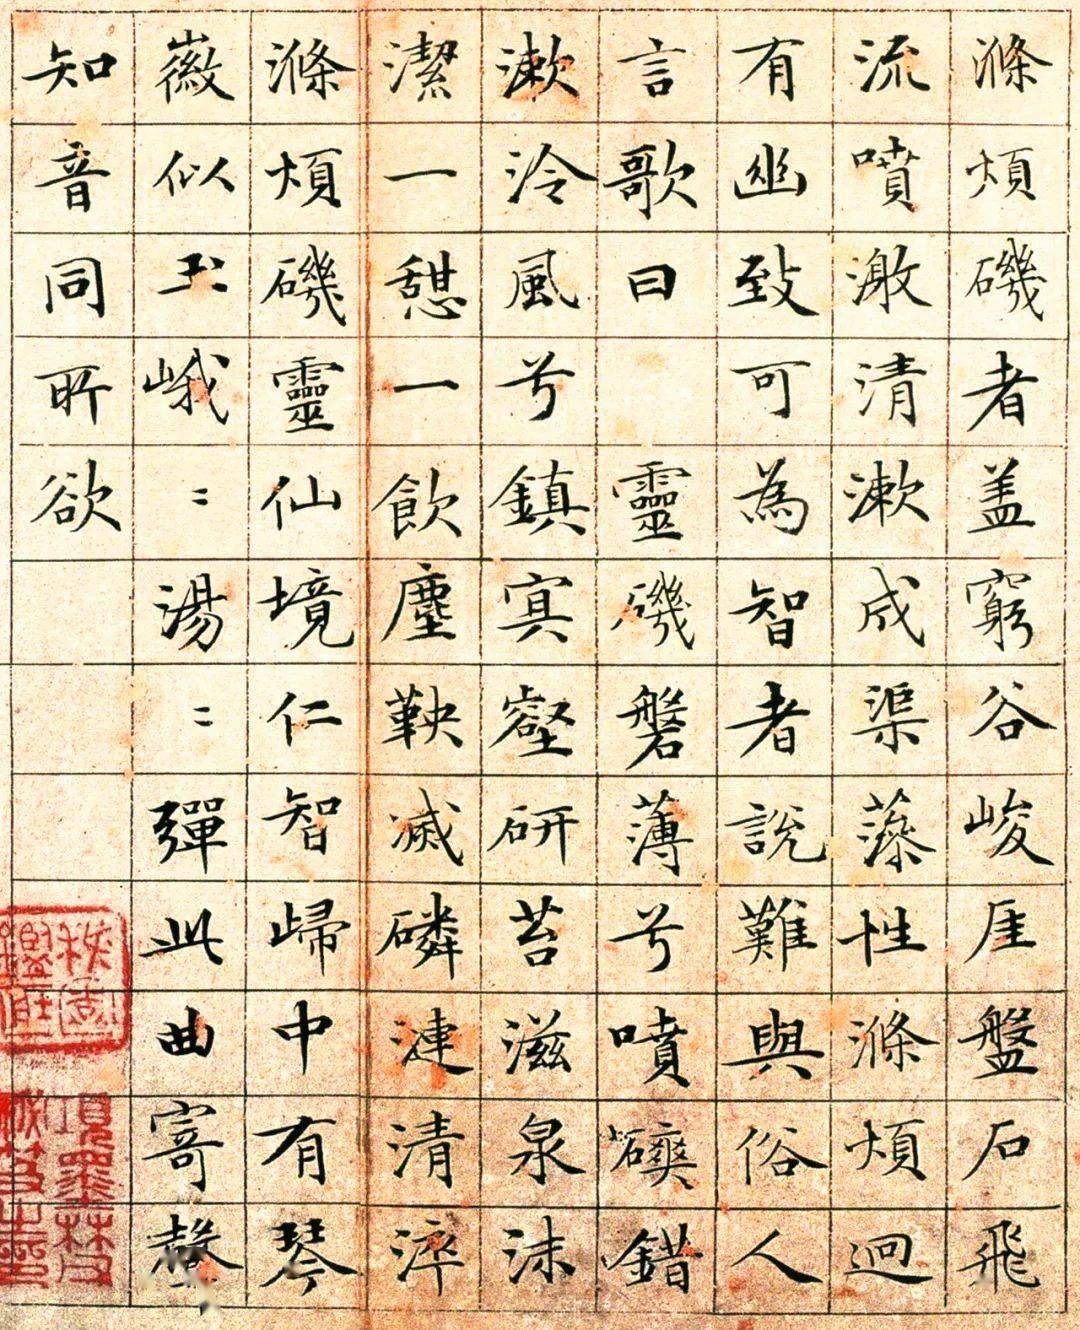 滌煩磯者盖窮谷峻厓盤石飛
流噴激清漱成渠藻性滌煩迥
有幽致可為智者說難與俗人
言歌曰 靈磯磐薄兮噴錯
漱泠風兮鎮冥壑研苔滋泉沫
潔一憩一飲塵鞅滅磷漣清淬
滌煩磯靈仙境仁智歸中有琴
徽似玉峨〻湯〻彈此曲寄聲
知音同所欲
項墨林父
秘笈之印